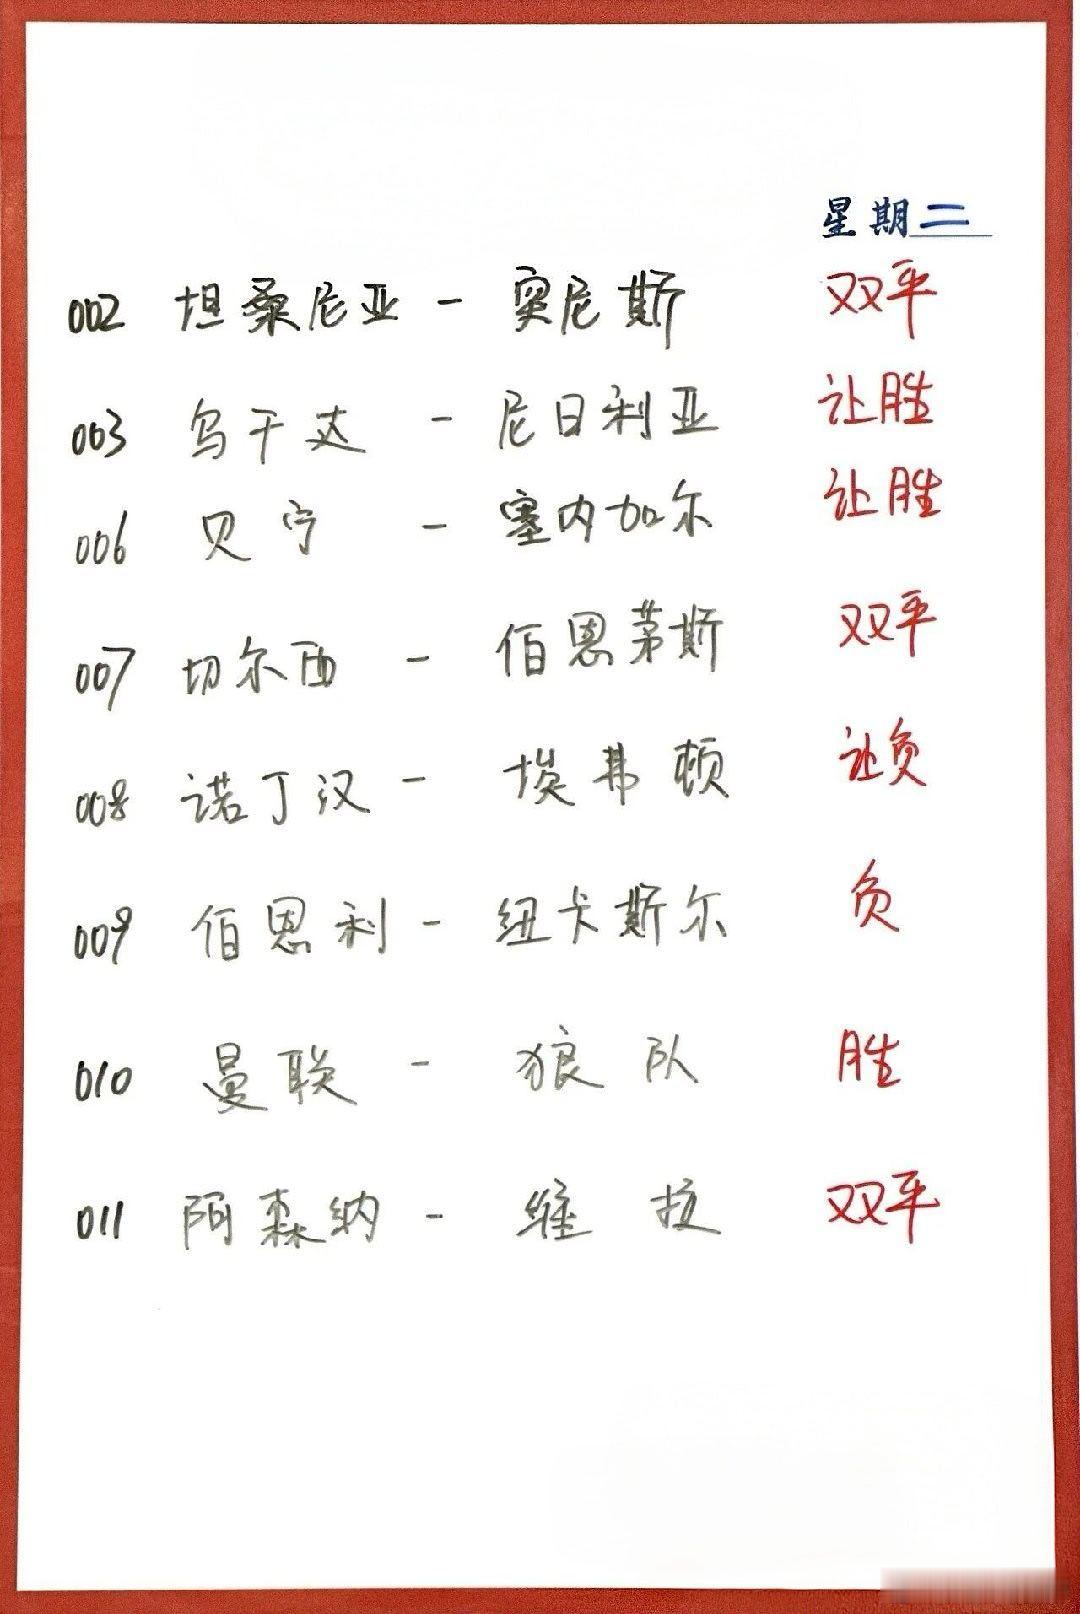 星期二
002 坦桑尼亚 - 突尼斯 双平
003 乌干达 - 尼日利亚 让胜
006 贝宁 - 塞内加尔 让胜
007 切尔西 - 伯恩茅斯 双平
008 诺丁汉 - 埃弗顿 让负
009 伯恩利 - 纽卡斯尔 负
010 曼联 - 狼队 胜
011 阿森纳 - 维拉 双平